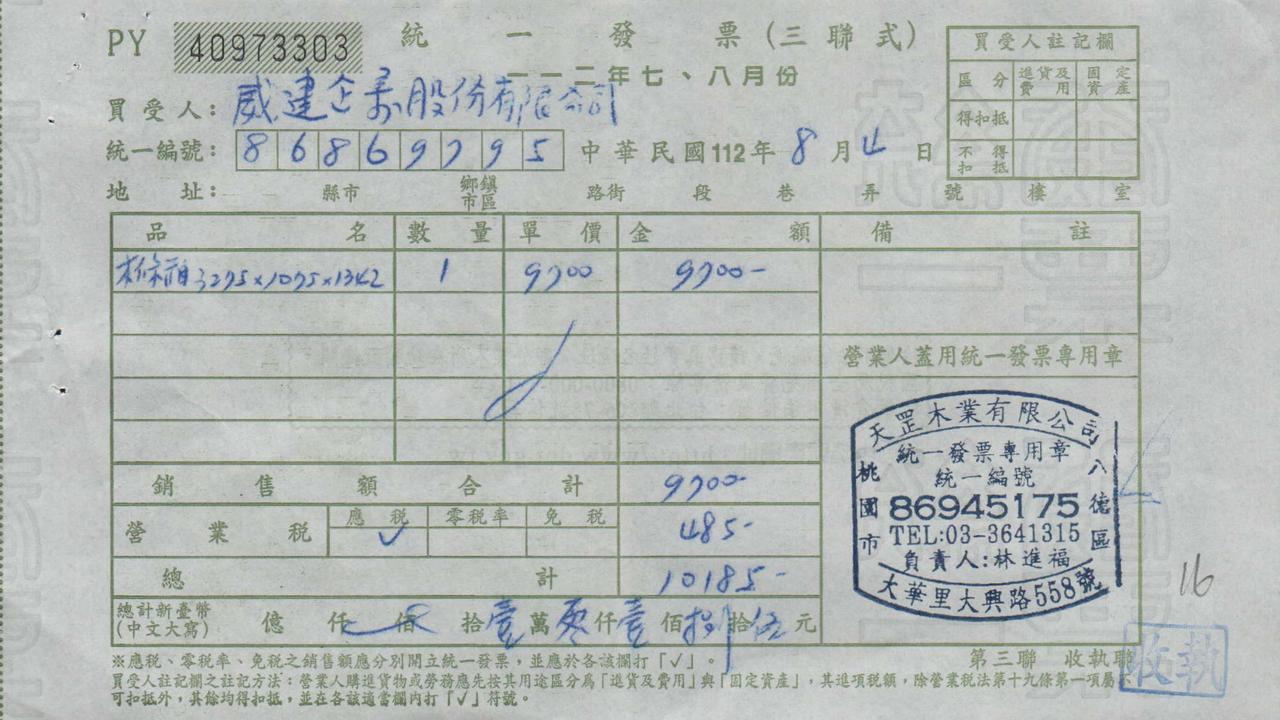 PY 40973303 統一發票(三聯式)
一一二年七、八月份
買受人註記欄
區分 進貨及費用 固定資產
得扣抵
不得扣抵
買受人: 威建企業股份有限公司
統一編號: 86869795 中華民國112年8月4日
地址: 縣市 鄉鎮市區 路街 段 巷 弄 號 樓 室
品名 數量 單價 金額 備註
木條箱 3275x1075x1342 1 9700 9700-
營業人蓋用統一發票專用章
銷售額合計 9700-
營業稅 應稅 ✓ 零稅率 免稅 485-
總計 10185-
總計新臺幣(中文大寫) 億 仟 佰 拾壹萬零仟壹佰捌拾伍元
天罡木業有限公司
統一發票專用章
統一編號
86945175
TEL:03-3641315
負責人:林進福
桃園市八德區
大華里大興路558號
16
※應稅、零稅率、免稅之銷售額應分別開立統一發票,並應於各該欄打「√」。
第三聯 收執聯
收執
買受人註記欄之註記方法:營業人購進貨物或勞務應先按其用途區分為「進貨及費用」與「固定資產」,其進項稅額,除營業稅法第十九條第一項屬不
可扣抵外,其餘均得扣抵,並在各該適當欄內打「√」符號。